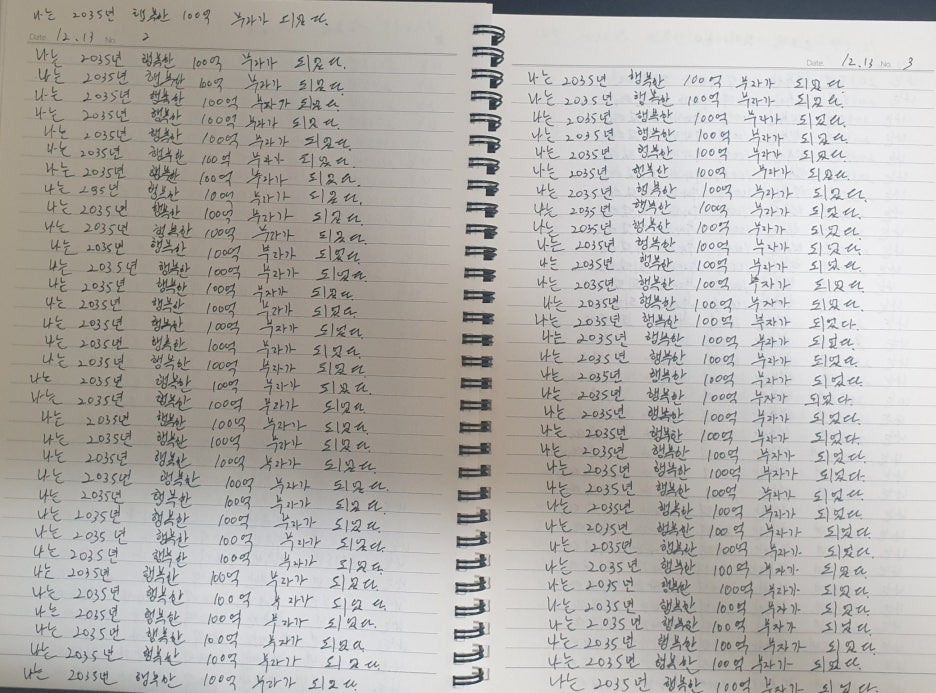 나는 2035년 행복한 100억 부자가 되었다.
Date. 12. 13 No. 2
나는 2035년 행복한 100억 부자가 되었다.
나는 2035년 행복한 100억 부자가 되었다.
나는 2035년 행복한 100억 부자가 되었다.
나는 2035년 행복한 100억 부자가 되었다.
나는 2035년 행복한 100억 부자가 되었다.
나는 2035년 행복한 100억 부자가 되었다.
나는 2035년 행복한 100억 부자가 되었다.
나는 2035년 행복한 100억 부자가 되었다.
나는 2035년 행복한 100억 부자가 되었다.
나는 2035년 행복한 100억 부자가 되었다.
나는 2035년 행복한 100억 부자가 되었다.
나는 2035년 행복한 100억 부자가 되었다.
나는 2035년 행복한 100억 부자가 되었다.
나는 2035년 행복한 100억 부자가 되었다.
나는 2035년 행복한 100억 부자가 되었다.
나는 2035년 행복한 100억 부자가 되었다.
나는 2035년 행복한 100억 부자가 되었다.
나는 2035년 행복한 100억 부자가 되었다.
나는 2035년 행복한 100억 부자가 되었다.
나는 2035년 행복한 100억 부자가 되었다.
나는 2035년 행복한 100억 부자가 되었다.
나는 2035년 행복한 100억 부자가 되었다.
나는 2035년 행복한 100억 부자가 되었다.
나는 2035년 행복한 100억 부자가 되었다.
나는 2035년 행복한 100억 부자가 되었다.
나는 2035년 행복한 100억 부자가 되었다.
나는 2035년 행복한 100억 부자가 되었다.
나는 2035년 행복한 100억 부자가 되었다.
나는 2035년 행복한 100억 부자가 되었다.
나는 2035년 행복한 100억 부자가 되었다.
나는 2035년 행복한 100억 부자가 되었다.
나는 2035년 행복한 100억 부자가 되었다.
나는 2035년 행복한 100억 부자가 되었다.
Date. 12. 13 No. 3
나는 2035년 행복한 100억 부자가 되었다.
나는 2035년 행복한 100억 부자가 되었다.
나는 2035년 행복한 100억 부자가 되었다.
나는 2035년 행복한 100억 부자가 되었다.
나는 2035년 행복한 100억 부자가 되었다.
나는 2035년 행복한 100억 부자가 되었다.
나는 2035년 행복한 100억 부자가 되었다.
나는 2035년 행복한 100억 부자가 되었다.
나는 2035년 행복한 100억 부자가 되었다.
나는 2035년 행복한 100억 부자가 되었다.
나는 2035년 행복한 100억 부자가 되었다.
나는 2035년 행복한 100억 부자가 되었다.
나는 2035년 행복한 100억 부자가 되었다.
나는 2035년 행복한 100억 부자가 되었다.
나는 2035년 행복한 100억 부자가 되었다.
나는 2035년 행복한 100억 부자가 되었다.
나는 2035년 행복한 100억 부자가 되었다.
나는 2035년 행복한 100억 부자가 되었다.
나는 2035년 행복한 100억 부자가 되었다.
나는 2035년 행복한 100억 부자가 되었다.
나는 2035년 행복한 100억 부자가 되었다.
나는 2035년 행복한 100억 부자가 되었다.
나는 2035년 행복한 100억 부자가 되었다.
나는 2035년 행복한 100억 부자가 되었다.
나는 2035년 행복한 100억 부자가 되었다.
나는 2035년 행복한 100억 부자가 되었다.
나는 2035년 행복한 100억 부자가 되었다.
나는 2035년 행복한 100억 부자가 되었다.
나는 2035년 행복한 100억 부자가 되었다.
나는 2035년 행복한 100억 부자가 되었다.
나는 2035년 행복한 100억 부자가 되었다.
나는 2035년 행복한 100억 부자가 되었다.
나는 2035년 행복한 100억 부자가 되었다.